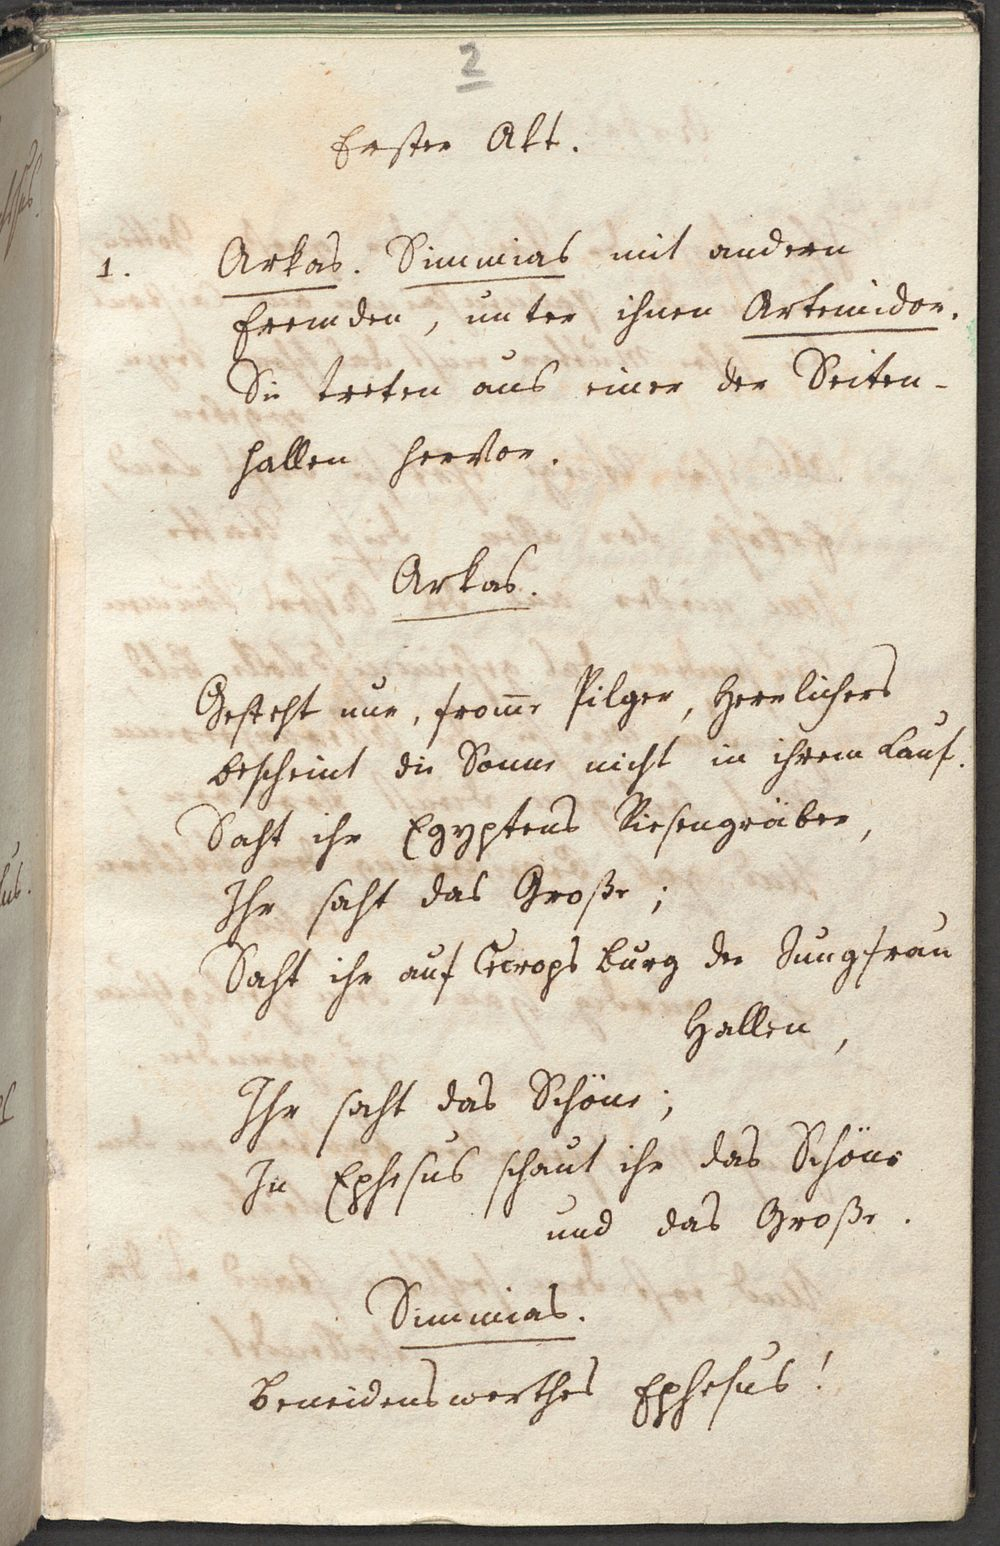 2
Erster Akt.
1. Arkas. Simmias mit andern
Fremden, unter ihnen Artemidor.
Sie treten aus einer der Seiten-
hallen hervor.
Arkas.
Gesteht nur, from̄e Pilger, Herrlichers
bescheint die Sonne nicht in ihrem Lauf.
Saht ihr Egyptens Riesengräber,
Ihr saht das Große;
Saht ihr auf Cecrops Burg der Jungfrau
Hallen,
Ihr saht das Schöne;
In Ephesus schaut ihr das Schöne
und das Große.
Simmias.
Beneidenswerthes Ephesus!